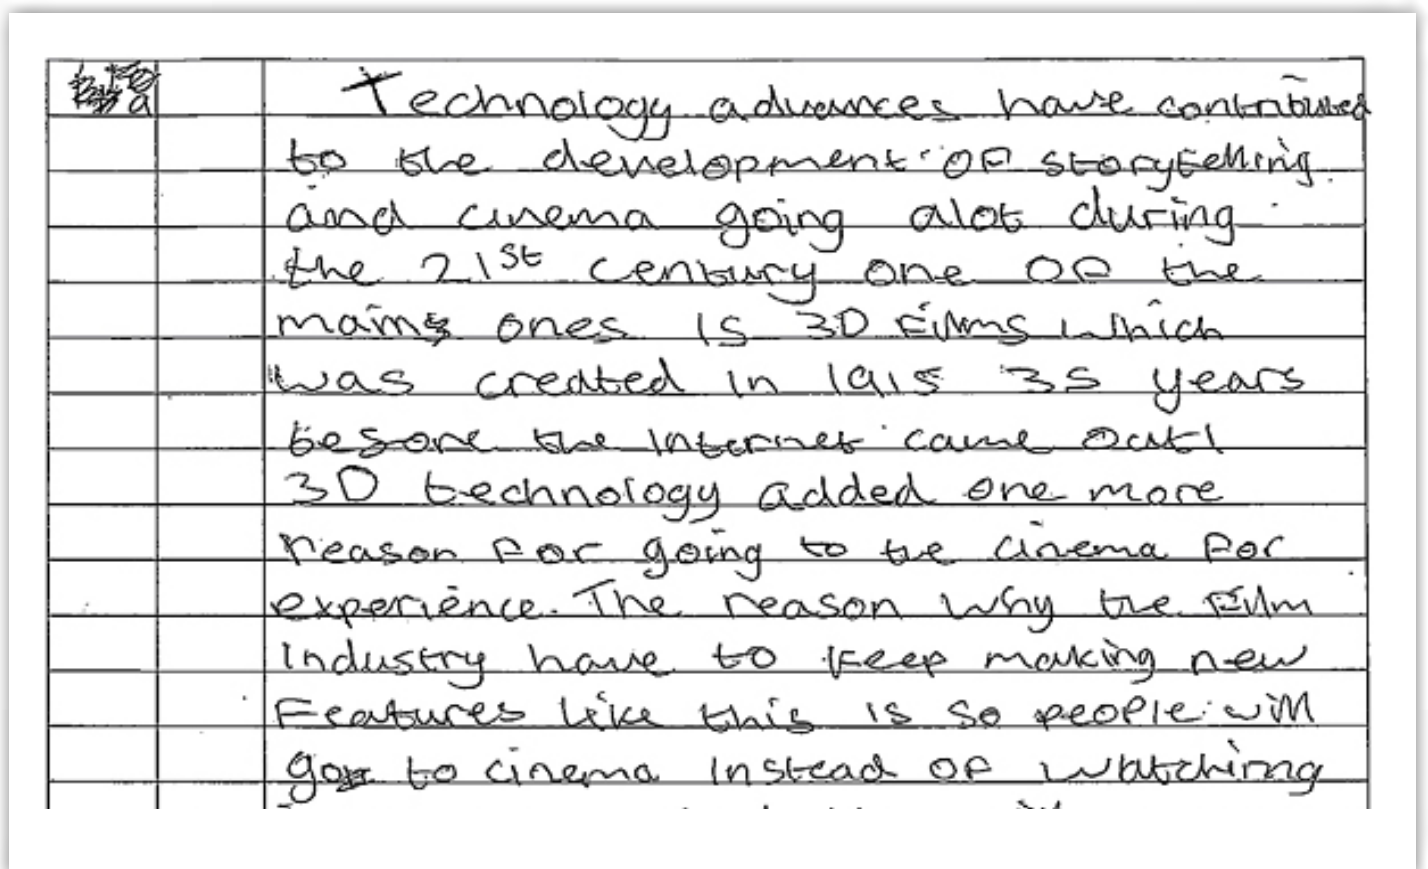 a
Technology advances have contributed
to the development of storytelling
and cinema going alot during
the 21st century one of the
main ones is 3D films which
was created in 1915 35 years
before the internet came out!
3D technology added one more
reason for going to the cinema for
experience. The reason why the film
industry have to keep making new
features like this is so people will
go to cinema instead of watching